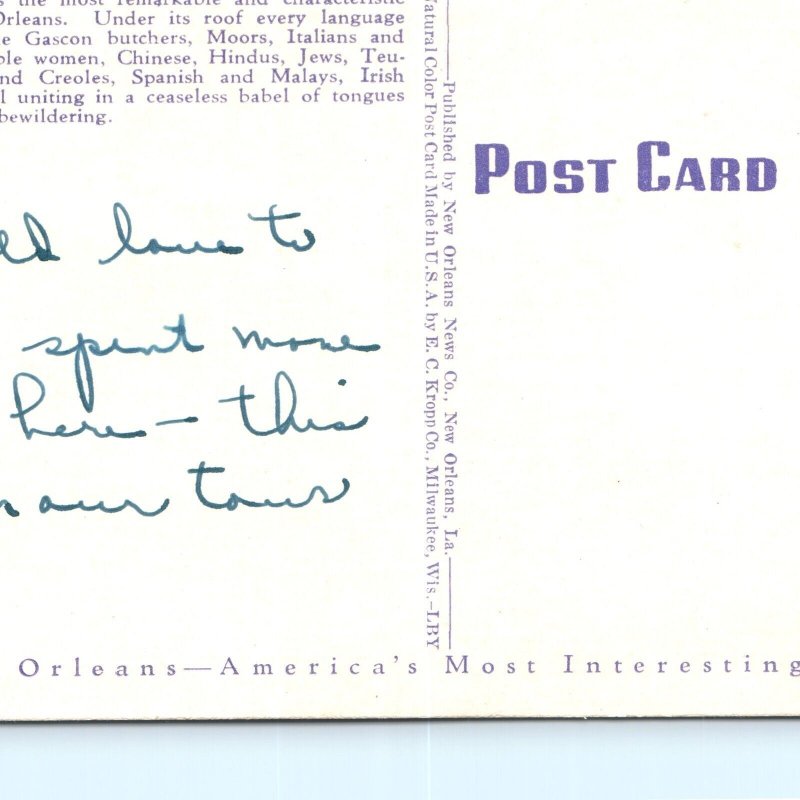 the most remarkable and characteristic
Orleans. Under its roof every language
e Gascon butchers, Moors, Italians and
ble women, Chinese, Hindus, Jews, Teu-
nd Creoles, Spanish and Malays, Irish
l uniting in a ceaseless babel of tongues
bewildering.
love to
spent more
here — this
our tour
Natural Color Post Card Made in U.S.A. by E. C. Kropp Co., Milwaukee, Wis.—LBY
Published by New Orleans News Co., New Orleans, La.
POST CARD
Orleans—America's Most Interesting